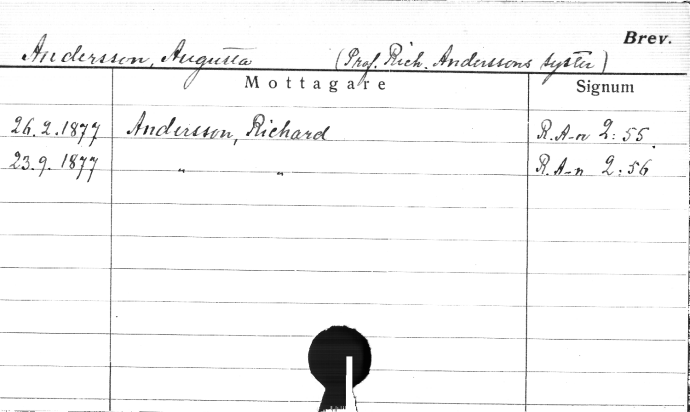 Brev.
Andersson, Augusta (Prof. Rich. Anderssons syster)
Mottagare Signum
26.2.1877 Andersson, Richard R.A-n 2:55.
23.9.1877 " " R.A-n 2:56